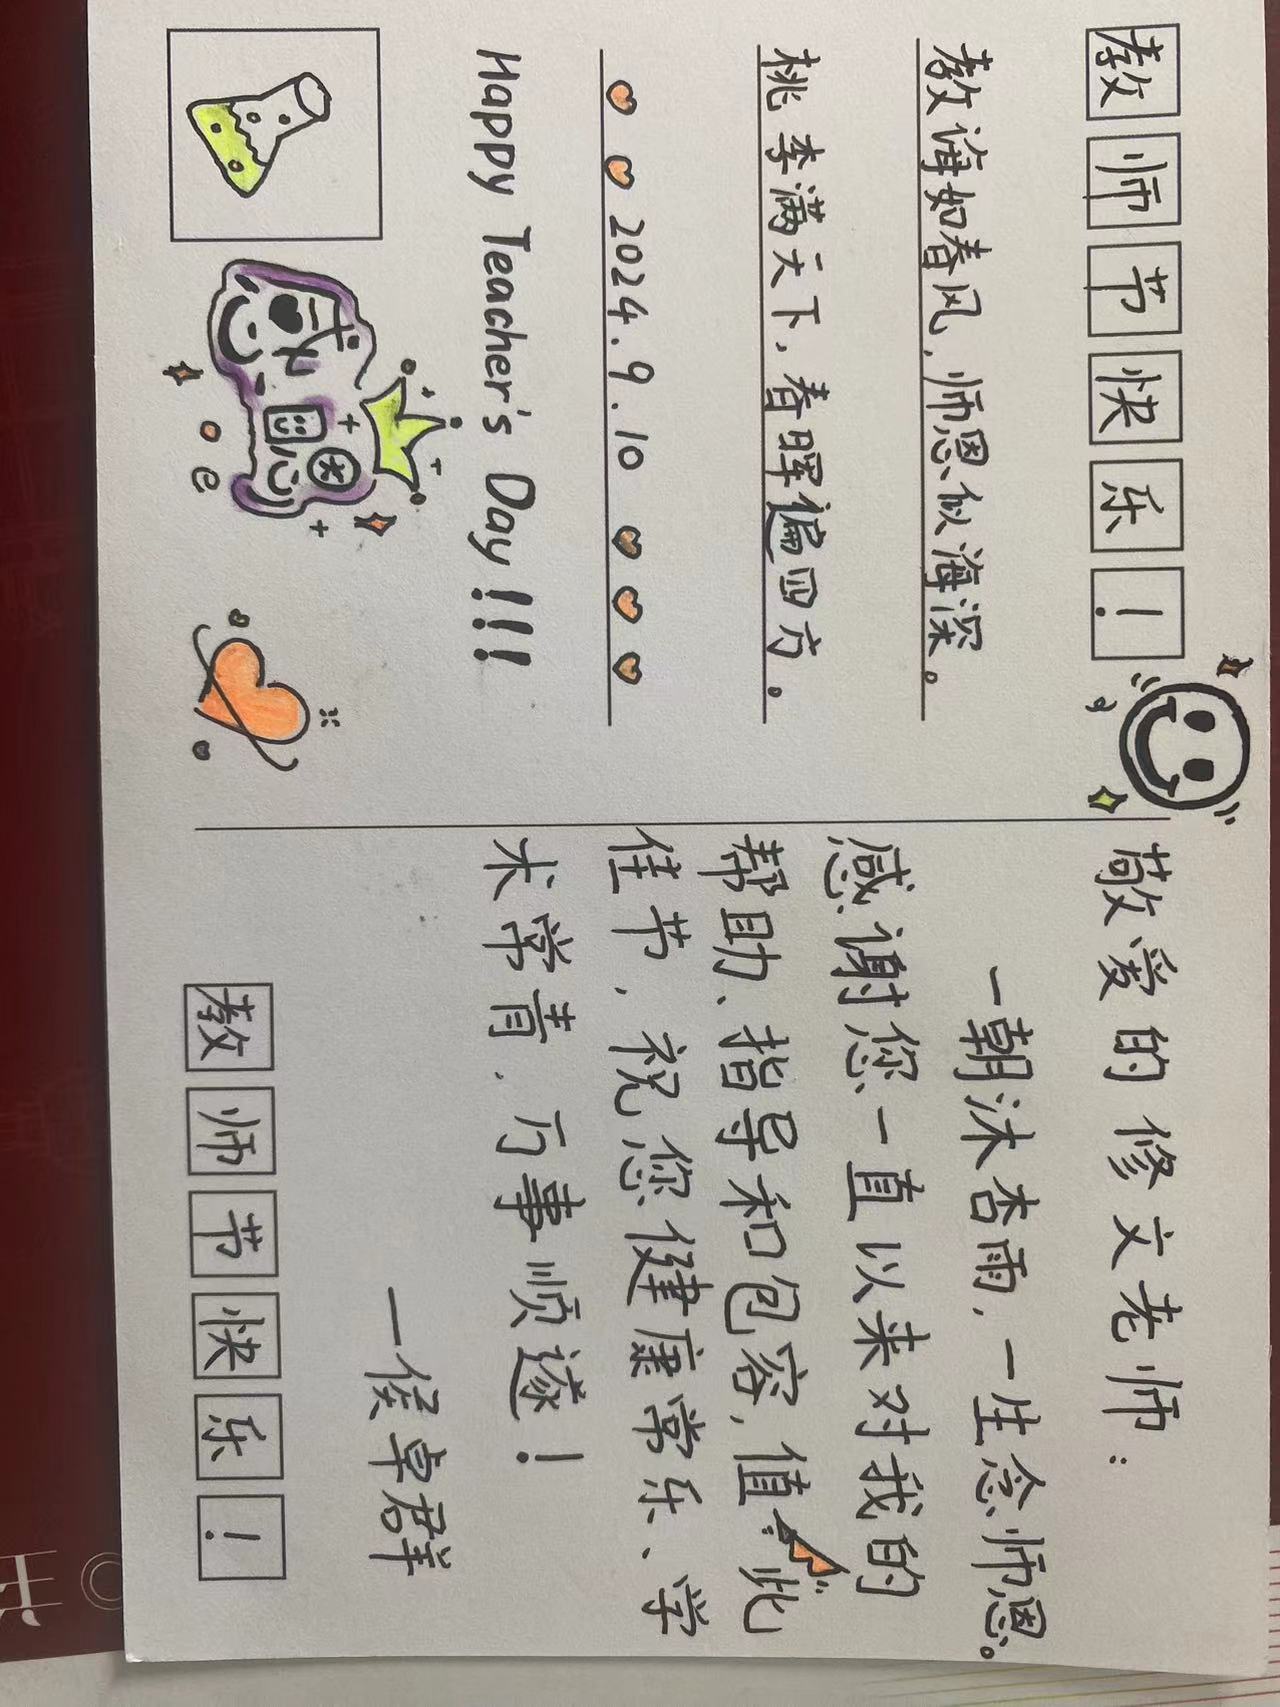 教师节快乐!
教诲如春风,师恩似海深。
桃李满天下,春晖遍四方。
2024.9.10
Happy Teacher's Day!!!
敬爱的修文老师:
一朝沐杏雨,一生念师恩。
感谢您一直以来对我的
帮助、指导和包容,值此
佳节,祝您健康常乐、学
术常青,万事顺遂!
—侯卓群
教师节快乐!